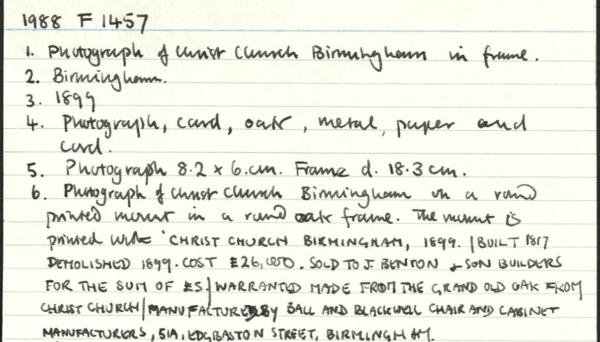 1988 F 1457
1. Photograph of Christ Church Birmingham in frame.
2. Birmingham.
3. 1899
4. Photograph, card, oak, metal, paper and
cord.
5. Photograph 8.2 x 6.cm. Frame d. 18.3 cm.
6. Photograph of Christ Church Birmingham on a round
printed mount in a round oak frame. The mount is
printed with 'CHRIST CHURCH BIRMINGHAM, 1899. | BUILT 1817
DEMOLISHED 1899. COST £26,000. SOLD TO J. BENTON & SON BUILDERS
FOR THE SUM OF £5 | WARRANTED MADE FROM THE GRAND OLD OAK FROM
CHRIST CHURCH | MANUFACTURED BY BALL AND BLACKWELL CHAIR AND CABINET
MANUFACTURERS, 51A, EDGBASTON STREET, BIRMINGHAM.